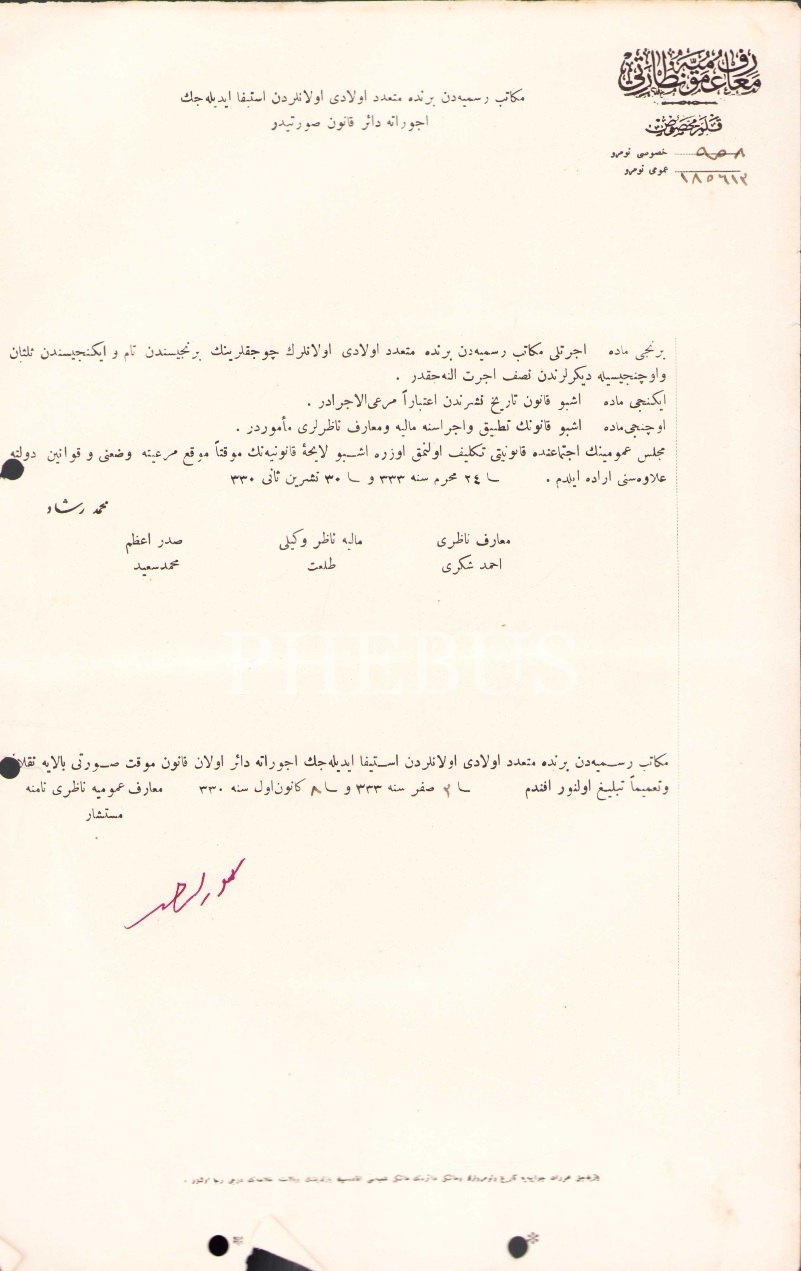 معارف عمومیه نظارتی
قلم مخصوص
خصوصی نومرو ٩٥٨
عمومی نومرو ١٨٥٦١٢
مكاتب رسمیه‌دن برنده متعدد اولادی اولانلردن استیفا ایدیله‌جك
اجوراته دائر قانون صورتیدر
برنجی ماده اجرتلی مكاتب رسمیه‌دن برنده متعدد اولادی اولانلرك چوجقلرینك برنجیسندن تام و ایكنجیسندن ثلثان
واوچنجیسیله دیكرلرندن نصف اجرت النه‌جقدر .
ایكنجی ماده اشبو قانون تاریخ نشرندن اعتباراً مرعی‌الاجرادر .
اوچنجی‌ماده اشبو قانونك تطبیق واجراسنه مالیه ومعارف ناظرلری مأموردر .
مجلس عمومینك اجتماعنده قانونیتی تكلیف اولنمق اوزره اشبو لایحهٔ قانونیه‌نك موقتاً موقع مرعیته وضعنی و قوانین دولته
علاوه‌سنی اراده ایلدم . ٢٤ محرم سنه ٣٣٣ و ٣٠ تشرین ثانی ٣٣٠
محمد رشاد
معارف ناظری مالیه ناظر وكیلی صدر اعظم
احمد شكری طلعت محمدسعید
PHEBUS
مكاتب رسمیه‌دن برنده متعدد اولادی اولانلردن استیفا ایدیله‌جك اجوراته دائر اولان قانون موقت صورتی بالایه نقلاً
وتعمیماً تبلیغ اولنور افندم ٢ صفر سنه ٣٣٣ و ٨ كانون‌اول سنه ٣٣٠ معارف عمومیه ناظری نامنه
مستشار